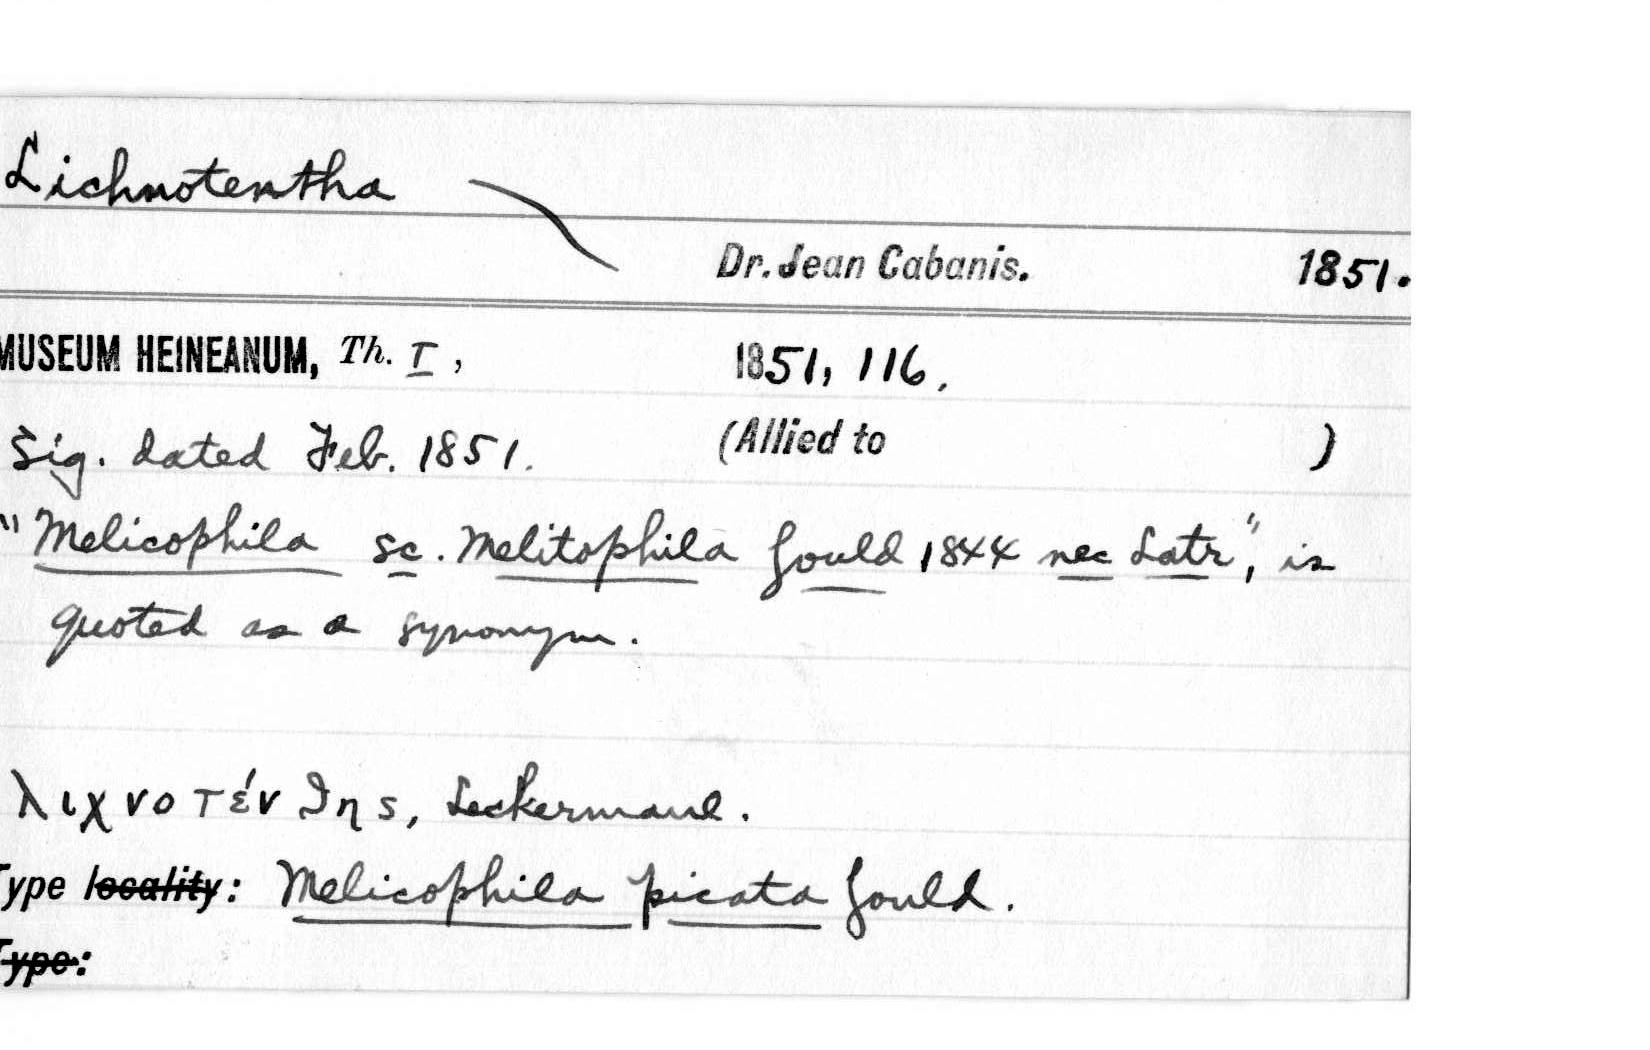 Lichnotentha
Dr. Jean Cabanis. 1851.
MUSEUM HEINEANUM, Th. I, 1851, 116.
Sig. dated Feb. 1851. (Allied to )
"Melicophila sc. Melitophila Gould 1844 nec Latr", is
quoted as a synonym.
λιχνοτένθης, Leckermaul.
Type locality: Melicophila picata Gould.
Type: